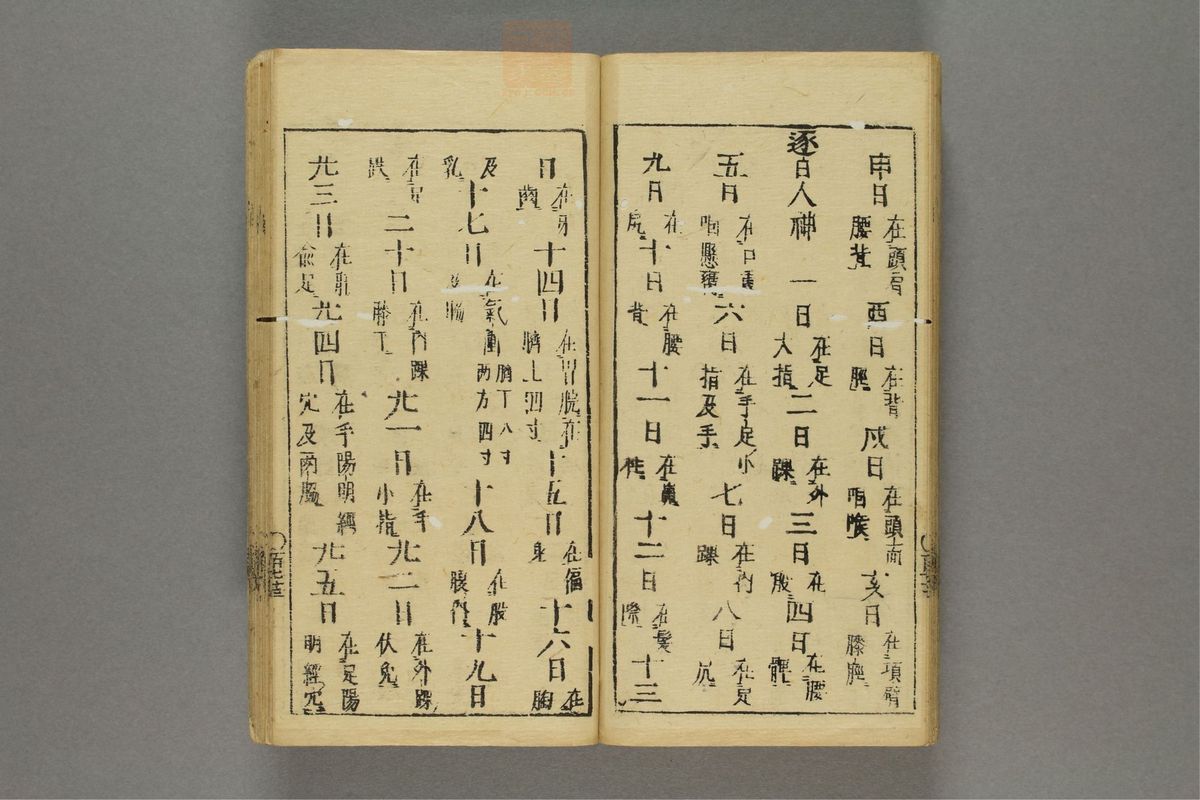 申日 在頭肩腰背 酉日 在背脛 戌日 在頭面咽喉 亥日 在項臂膝脛
逐日人神 一日 在足大指 二日 在外踝 三日 在股 四日 在腰
五日 在口咽懸 六日 在手足小指及手 七日 在内踝 八日 在足尻
九日 在尻 十日 在腰背 十一日 在鼻柱 十二日 在髪際 十三
日 在牙齒 十四日 在胃脘在臍上四寸 十五日 在徧身 十六日 在胸
及乳 十七日 在氣衝 臍下八寸兩方四寸 十八日 在股腹 十九日
在足跌 二十日 在内踝膝下 廿一日 在手小指 廿二日 在外踝伏兔
廿三日 在 俞足 廿四日 在手陽明經穴及兩脇 廿五日 在足陽明經穴